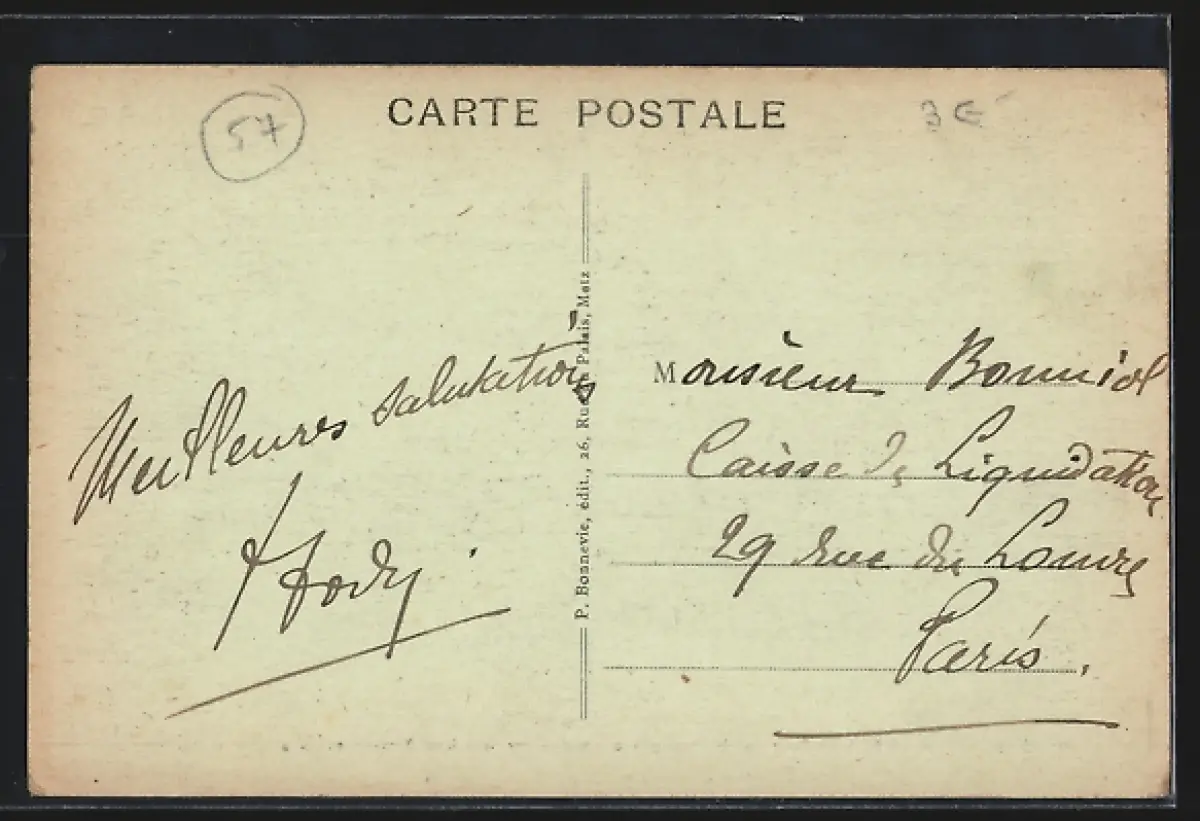 57
CARTE POSTALE
3€
Meilleures salutations
Hody.
P. Bonnevie, édit., 26, Rue du Palais, Metz
Monsieur Bonniol
Caisse de Liquidation
29 rue du Louvre
Paris.